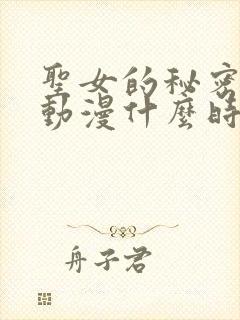 聖女的秘密
動漫什麼時
舟子君